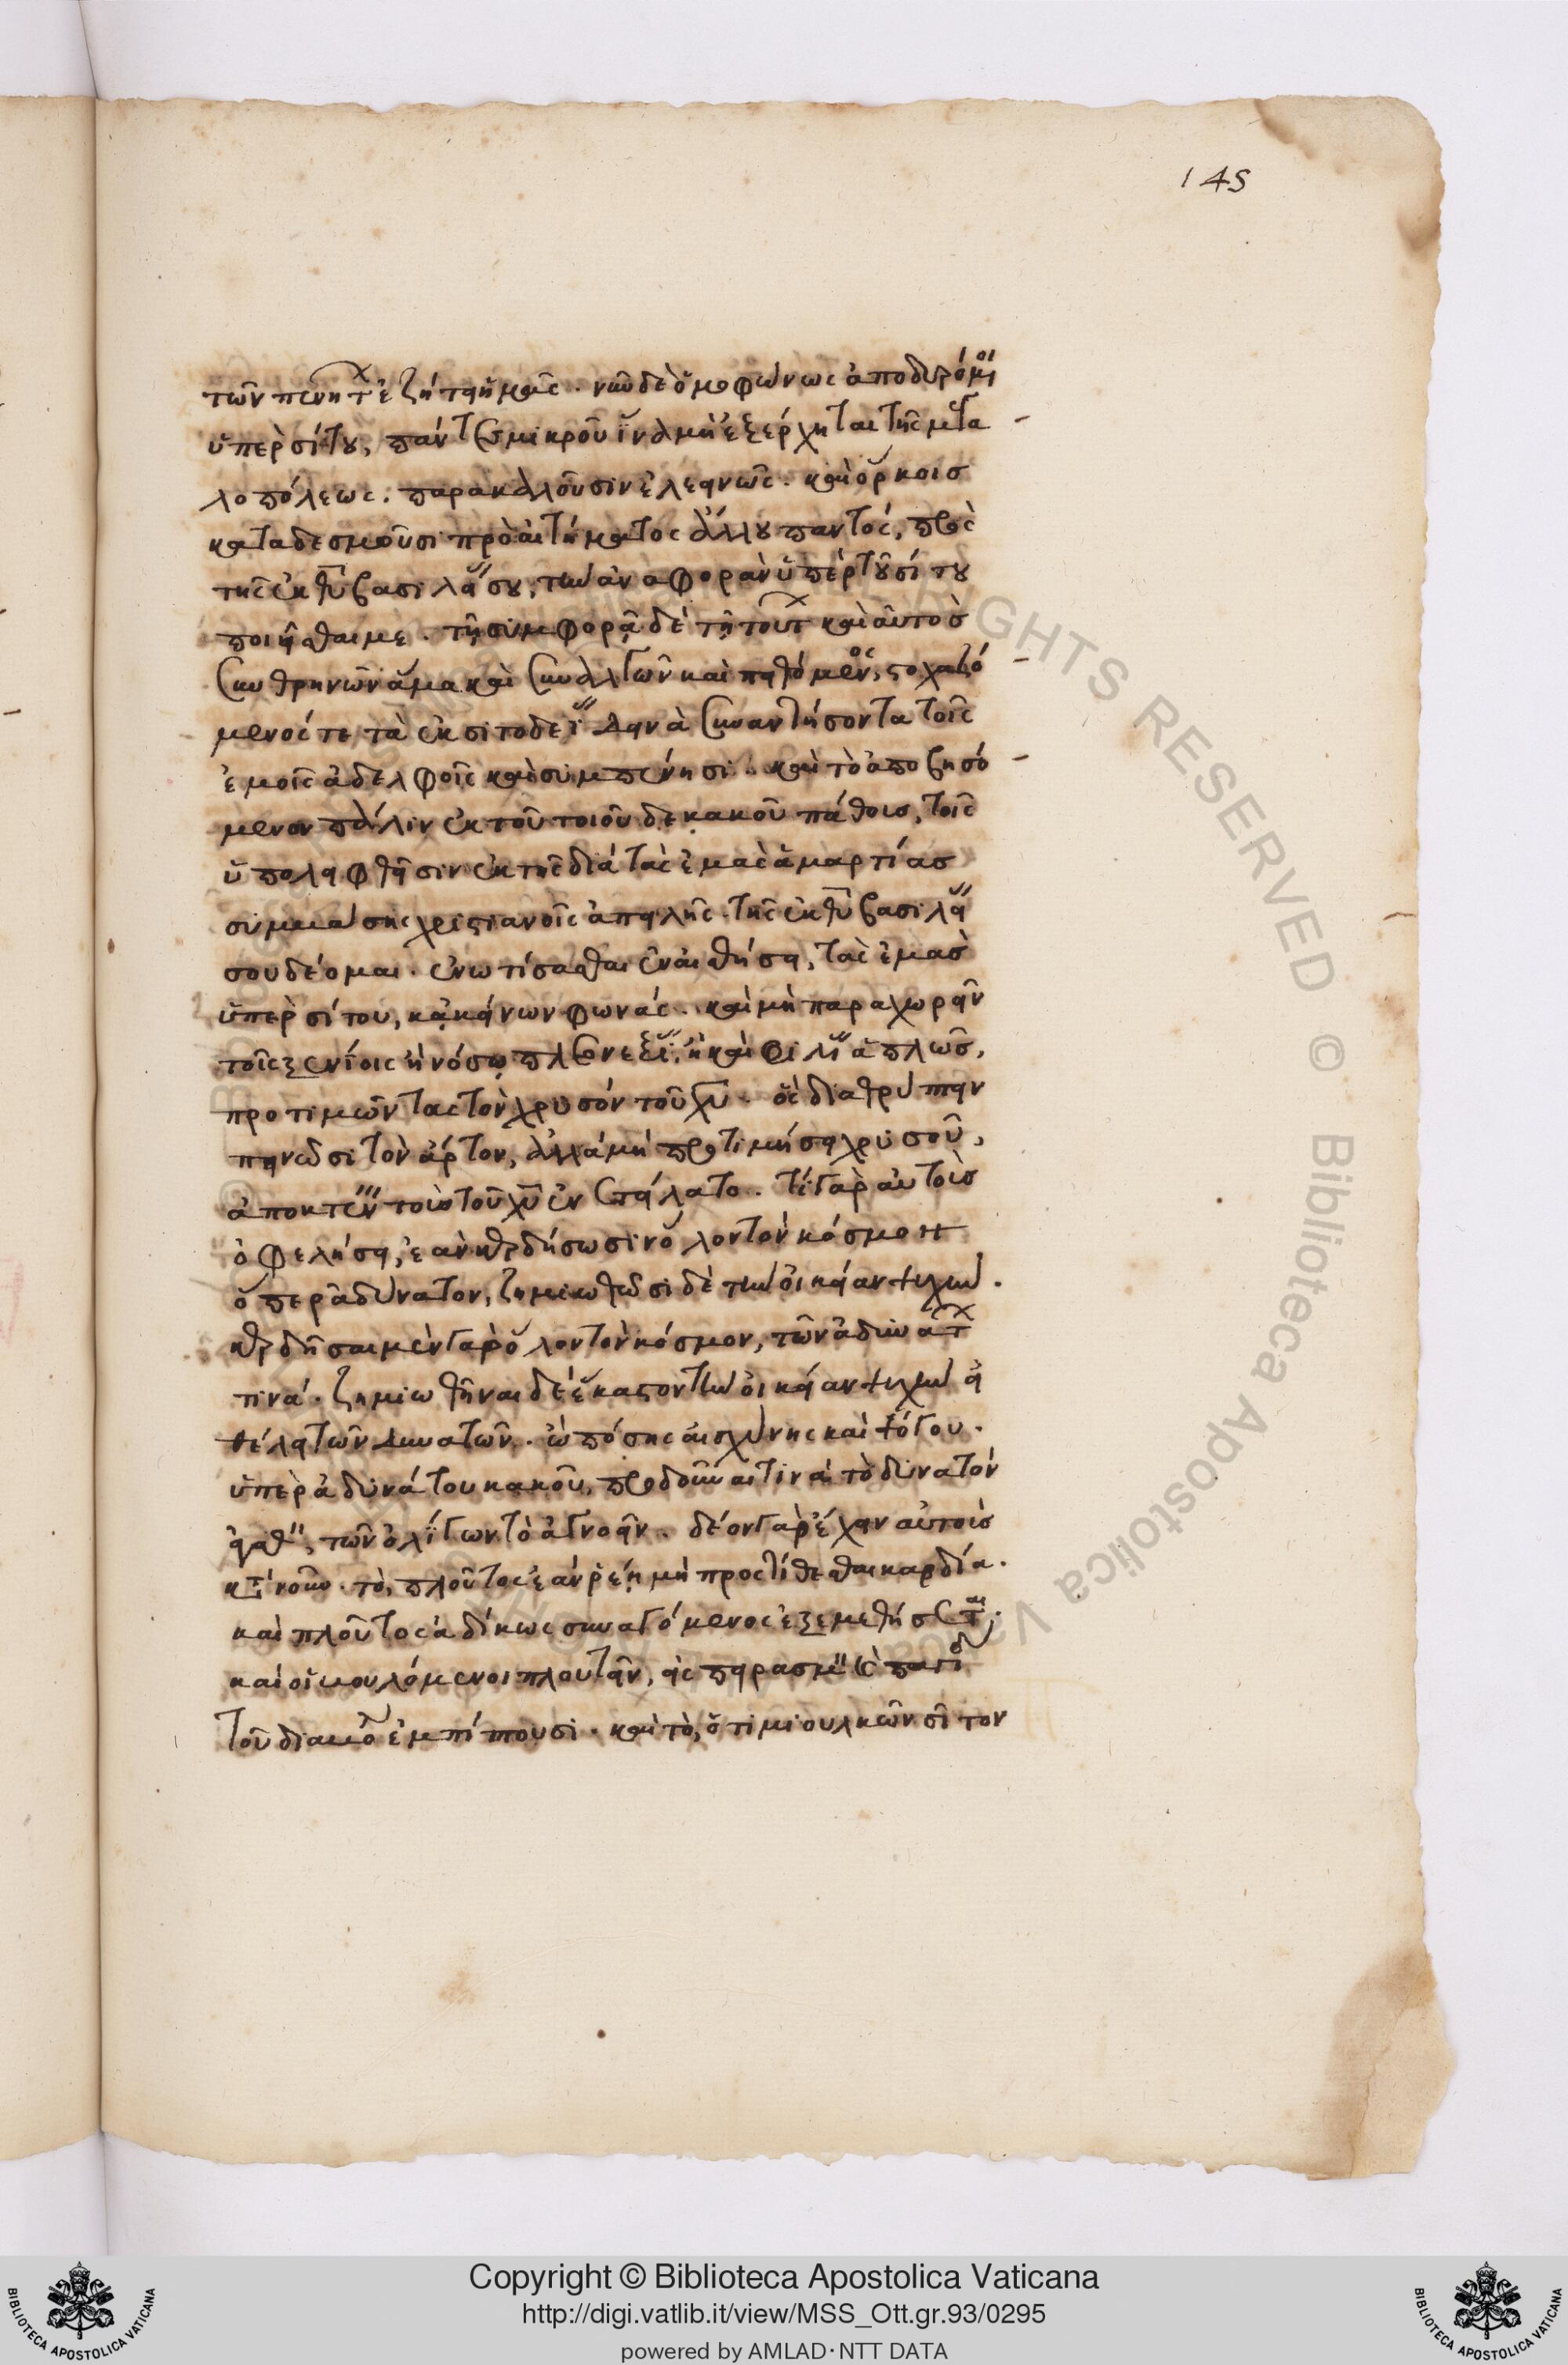 145
τῶν πενήτ ἐζήτει ἡμᾶς. νῦν δὲ ὁμοφώνως ἀποδυρόμοι
ὑπὲρ σίτου, πάντες μικροῦ ἵνα μὴ ἐξέρχηται τῆς μεγα
λοπόλεως. παρακαλοῦσιν ἐλεεινῶς. καὶ ὅρκοις
καταδεσμοῦσι πρὸ αἰτήματος ἄλλου παντός, πρὸς
τῆς ἐκ θυ βασιλείσου, τὴν ἀναφορὰν ὑπὲρ τοῦ σίτου
ποιεῖσθαί με. τῇ συμφορᾷ δὲ τῇ τούτ καὶ αὐτὸς
συνθρηνῶν ἅμα καὶ συναλγῶν καὶ πειθόμενος, στοχαζό
μενός τε τὰ ἐκ σιτοδεί δεινὰ συναντήσοντα τοῖς
ἐμοῖς ἀδελφοῖς καὶ συμπένησι. καὶ τὸ ἀποβησό
μενον πάλιν ἐκ τοῦ τοιοῦδε κακοῦ πάθους, τοῖς
ὑπολειφθεῖσιν ἐκ τῆς διὰ τὰς ἐμὰς ἁμαρτίας
συμβάσης χριστιανοῖς ἀπειλῆς. τῆς ἐκ θυ βασιλεί
σου δέομαι. ἐνωτίσασθαι ἐναισθήσει, τὰς ἐμὰς
ὑπὲρ σίτου, κἀκείνων φωνάς. καὶ μὴ παραχωρεῖν
τοῖς ξενίοις ἢ νόσῳ πλεονεξί, ἢ καὶ φιλί ἁπλῶς,
προτιμῶντας τὸν χρυσὸν τοῦ χυ. ὃς διαθρύπτειν
πεινῶσι τὸν ἄρτον, ἀλλὰ μὴ προτιμήσει χρυσοῦ,
ἀποκτέν τοὺς τοῦ χυ ἐνεστείλατο. τί γὰρ αὐτοὺς
ὀφελήσει, ἐὰν κερδήσωσιν ὅλον τὸν κόσμον
ὅπερ ἀδύνατον, ζημιωθῶσι δὲ τὴν οἰκείαν ψυχήν.
κερδῆσαι μὲν γὰρ ὅλον τὸν κόσμον, τῶν ἀδυνάτ
τινά. ζημιωθῆναι δὲ ἕκαστον τὴν οἰκείαν ψυχὴν εἰ
θέλει τῶν δυνατῶν. ὢ πόσης αἰσχύνης καὶ ψόγου.
ὑπὲρ ἀδυνάτου κακοῦ, προδοῦναί τινα τὸ δυνατὸν
τῶν ὀλίγων τὸ ἀγνοεῖν. δέον γὰρ ἔχειν αὐτοὺς
κατὰ νοῦν. τὸ, πλοῦτος ἐὰν ῥέῃ μὴ προστίθεσθαι καρδία.
καὶ πλοῦτος ἀδίκως συναγόμενος ἐξεμεθήσεται.
καὶ οἱ βουλόμενοι πλουτεῖν, εἰς πειρασμ καὶ παγίδ
τοῦ διαβό ἐμπίπτουσι. καὶ τὸ, ὁ τιμιουλκῶν σῖτον
Copyright © Biblioteca Apostolica Vaticana
http://digi.vatlib.it/view/MSS_Ott.gr.93/0295
powered by AMLAD·NTT DATA